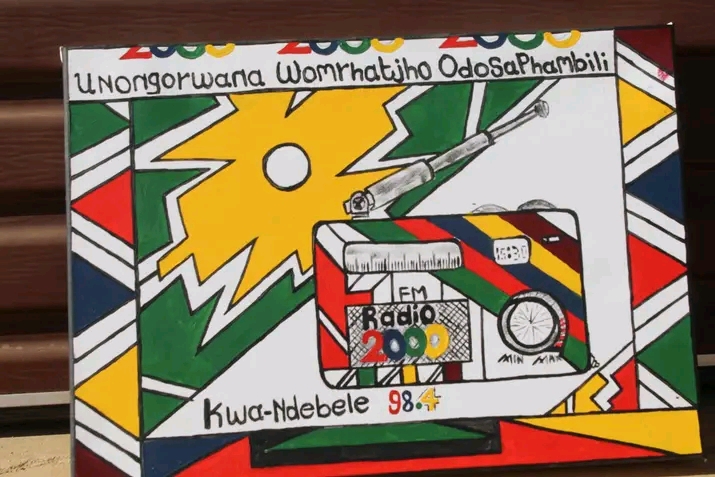 2000 2000 2000
UNongorwana Womrhatjho OdosaPhambili
5:30
FM
Radio
2000
MIN MAX
Kwa-Ndebele 98.4